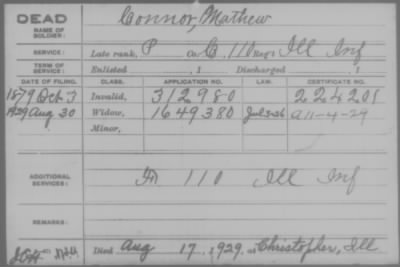 DEAD
NAME OF SOLDIER: Connor, Mathew
SERVICE: Late rank, P Co. C, 110 Reg't Ill Inf
TERM OF SERVICE: Enlisted , 1 Discharged , 1
DATE OF FILING. CLASS. APPLICATION NO. LAW. CERTIFICATE NO.
1879 Oct 3 Invalid, 312980 224201
1929 Aug 30 Widow, 1649380 a11-4-29
Minor,
ADDITIONAL SERVICES: 110 Ill Inf
REMARKS:
Died Aug 17, 1929, at Christopher, Ill